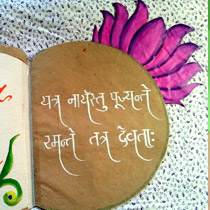 यत्र नार्यस्तु पूज्यन्ते
रमन्ते तत्र देवताः